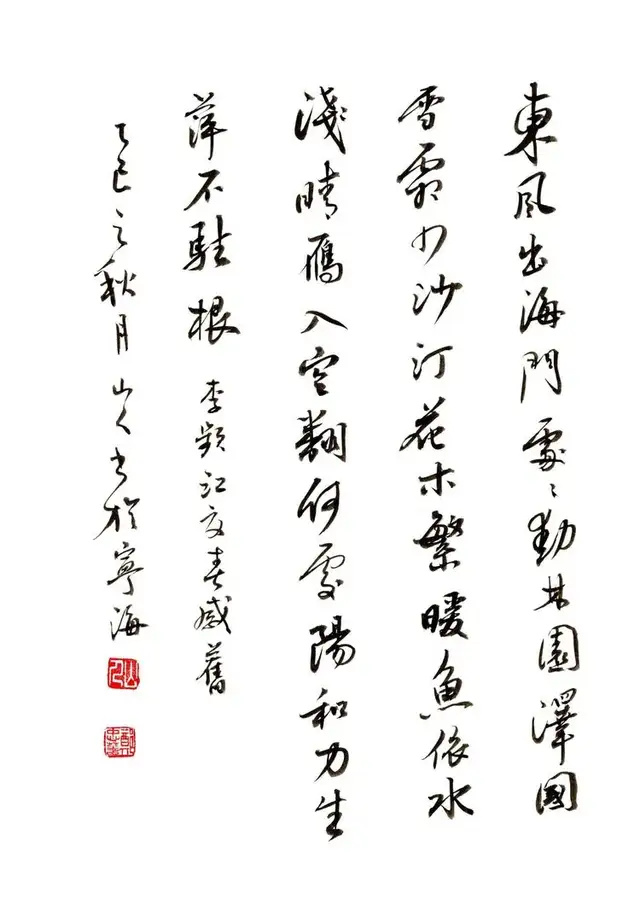 東風出海門處々動林園澤國
雪霜少沙汀花木繁暖魚依水
淺晴雁入空翻何處陽和力生
萍不駐根
李頻江夜春感舊
乙巳之秋月山人書於寧海